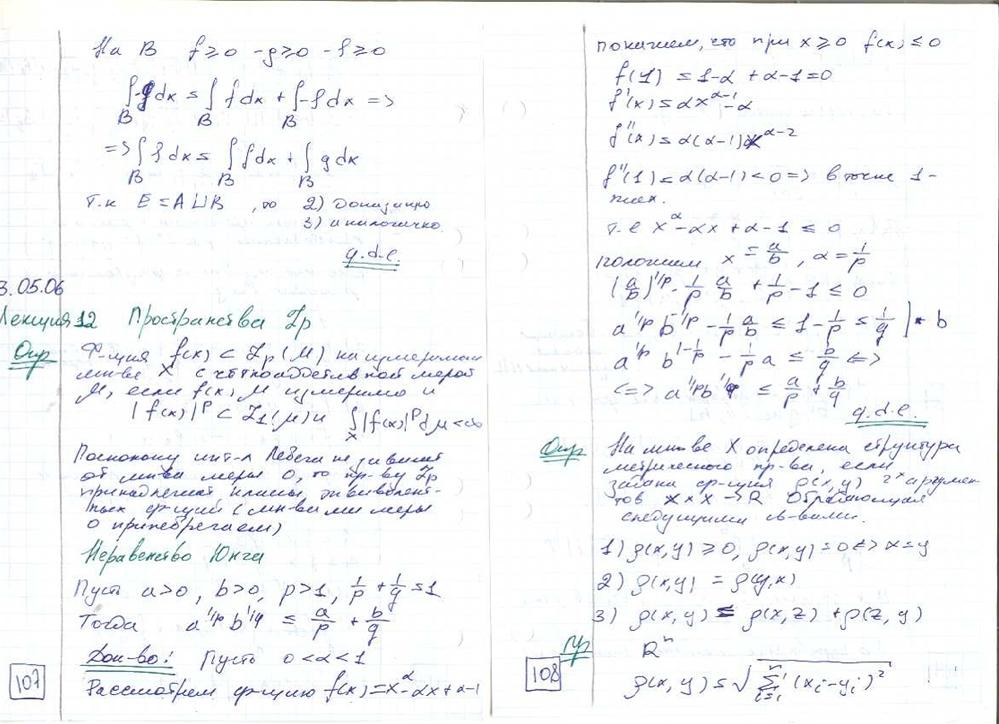 На B f ≥ 0 -g ≥ 0 -f ≥ 0
∫_B -g dx = ∫_B f dx + ∫_B -f dx =>
=> ∫_B f dx = ∫_B f dx + ∫_B g dx
Т.к E = A ⊔ B , то 2) Доказано
3) аналогично.
q.d.e.
3.05.06
Лекция 12 Пространства Lp
Опр Ф-ция f(x) ⊂ Lp(M) на измеримом
мн-ве X с счётноаддитивной мерой
M, если f(x) M измеримо и
|f(x)|^p ⊂ L1(μ) и ∫_X |f(x)|^p dμ < ∞
Поскольку инт-л Лебега не зависит
от мн-ва меры 0, то пр-ву Lp
принадлежат классы эквивалент-
ных ф-ций (мн-вами меры
0 пренебрегаем)
Неравенство Юнга
Пусть a>0, b>0, p>1, 1/p + 1/q = 1
Тогда a^{1/p} b^{1/q} ≤ a/p + b/q
Док-во: Пусть 0<α<1
107
Рассмотрем ф-цию f(x) = x^α - αx + α - 1
покажем, что при x ≥ 0 f(x) ≤ 0
f(1) = 1-α + α-1 = 0
f'(x) = αx^{α-1} - α
f''(x) = α(α-1)x^{α-2}
f''(1) = α(α-1) < 0 => в точке 1 -
max.
т.е x^α - αx + α - 1 ≤ 0
положим x = a/b , α = 1/p
(a/b)^{1/p} - 1/p a/b + 1/p - 1 ≤ 0
a^{1/p} b^{-1/p} - 1/p a/b ≤ 1 - 1/p = 1/q | * b
a^{1/p} b^{1-1/p} - 1/p a ≤ b/q <=>
<=> a^{1/p} b^{1/q} ≤ a/p + b/q
q.d.e.
Опр На мн-ве X определена структура
метрического пр-ва, если
задана ф-ция ρ(x,y) 2^х аргумен-
тов X×X → R Обладающая
следущими св-вами.
1) ρ(x,y) ≥ 0, ρ(x,y) = 0 <=> x = y
2) ρ(x,y) = ρ(y,x)
3) ρ(x,y) ≤ ρ(x,z) + ρ(z,y)
Пр R^n
108
ρ(x,y) = √(∑_{i=1}^{n} (x_i - y_i)^2)